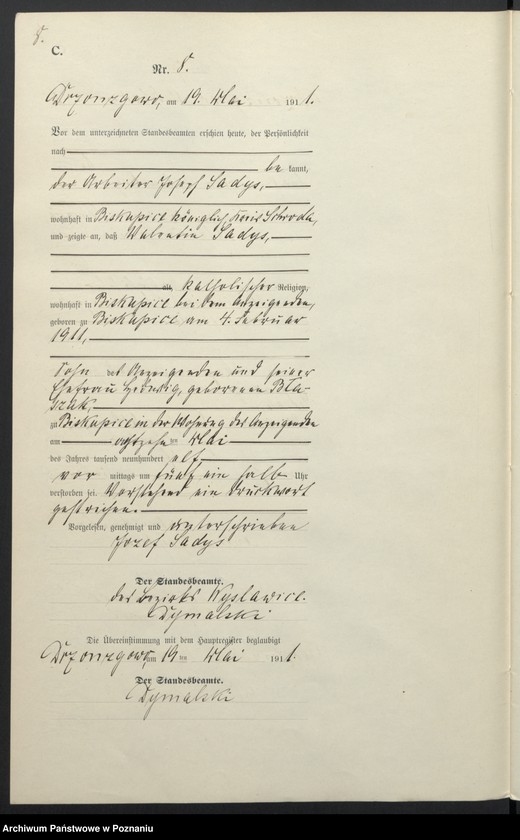 8.
C.
Nr. 8.
am 19. Mai 1911.
Vor dem unterzeichneten Standesbeamten erschien heute, der Persönlichkeit
nach
be kannt,
der Arbeiter Joseph Sadys,
wohnhaft in Biskupice königlich Kreis Schroda,
und zeigte an, daß Valentin Sadys,
alt, katholischer Religion,
wohnhaft in Biskupice bei dem Anzeigenden,
geboren zu Biskupice am 4. Februar
1911,
Sohn des Anzeigenden und seiner
Ehefrau Hedwig, geborenen Bła-
szak,
zu Biskupice in der Wohnung des Anzeigenden
am achtzehn ten Mai
des Jahres tausend neunhundert elf
vor mittags um fünf ein halb Uhr
verstorben sei. Vorstehend ein Druckwort
gestrichen.
Vorgelesen, genehmigt und unterschrieben
Józef Sadys
Der Standesbeamte.
des Bezirks Wysławice.
Dymalski
Die Übereinstimmung mit dem Hauptregister beglaubigt
am 19 ten Mai 1911.
Der Standesbeamte.
Dymalski
Archiwum Państwowe w Poznaniu